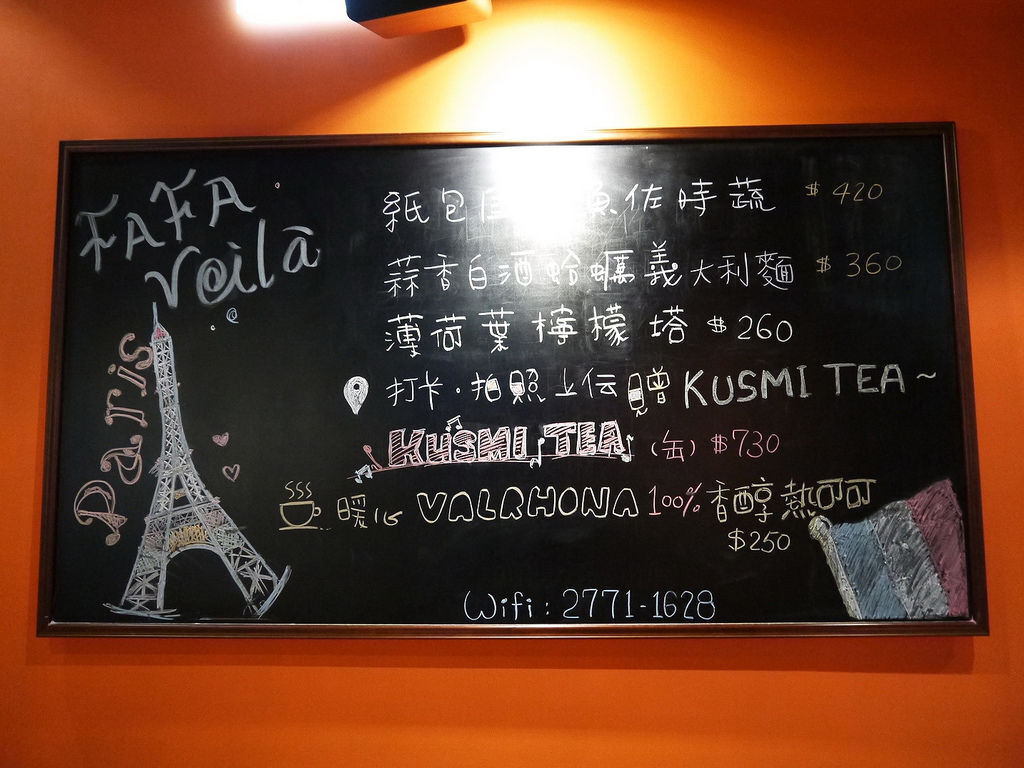 FAFA
Voilà
Paris
紙包 魚佐時蔬 $420
蒜香白酒蛤蠣義大利麵 $360
薄荷葉檸檬塔 $260
打卡·拍照上伝贈 KUSMI TEA~
KUSMI TEA (缶) $730
暖心 VALRHONA 100% 香醇熱可可
$250
Wifi : 2771-1628